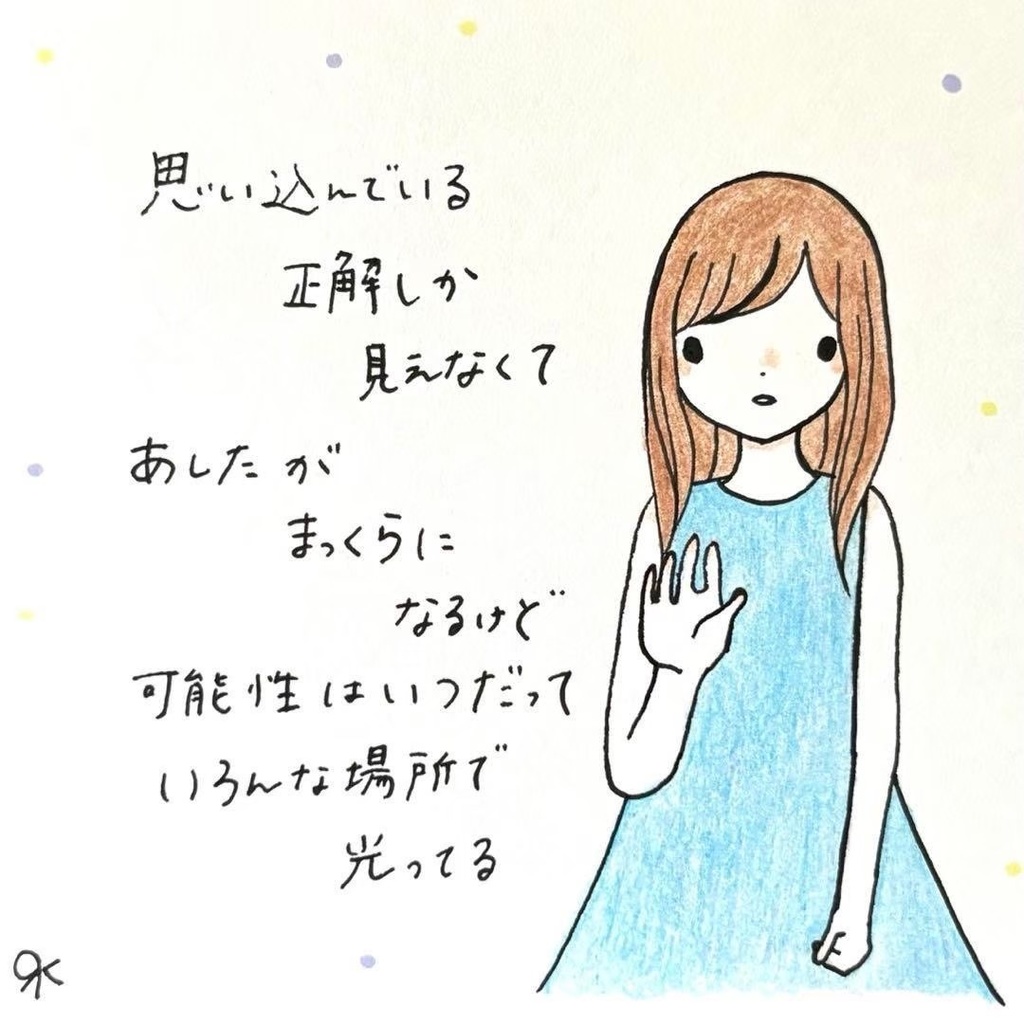 思い込んでいる
正解しか
見えなくて
あしたが
まっくらに
なるけど
可能性はいつだって
いろんな場所で
光ってる